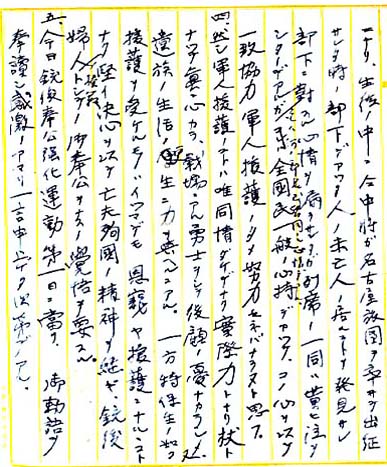 ニナリ、出征ノ中ニ谷中将ガ名古屋旅團ヲ率ヰ出征
サレタ時ノ部下デアツタ人ノ未亡人ノ居ルコトヲ発見サレ
部下ニ対スル心情ヲ 列席ノ一同ハ貰ヒ泣ヲ
シタ デアルガ 全國民一般ノ心持デアツテ、コノ心ヲ以テ
一致協力軍人援護ノタメ努力セネバナラヌト思フ。
四、然シ軍人援護ノコトハ唯同情ダケデナク実際力トナリ杖ト
ナツテ真心カラ、戦場ニアル勇士ヲシテ後顧ノ憂ナカラシメ、
遺族ノ生活ノ ニ力ヲ ニアル。一方 如ク
援護ヲ受ケルモノハイツマデモ恩義ヤ援護ニナルコト
ナク堅イ決心ヲ以テ亡夫殉國ノ精神ヲ継ギ、銃後
婦人トシテノ御奉公ヲナス覚悟ヲ要ス。
五、今日銃後奉公強化運動第一日ニ當リ、御勅語ヲ
奉讀シ感激ノアマリ一言申上ゲタ次第デアル。